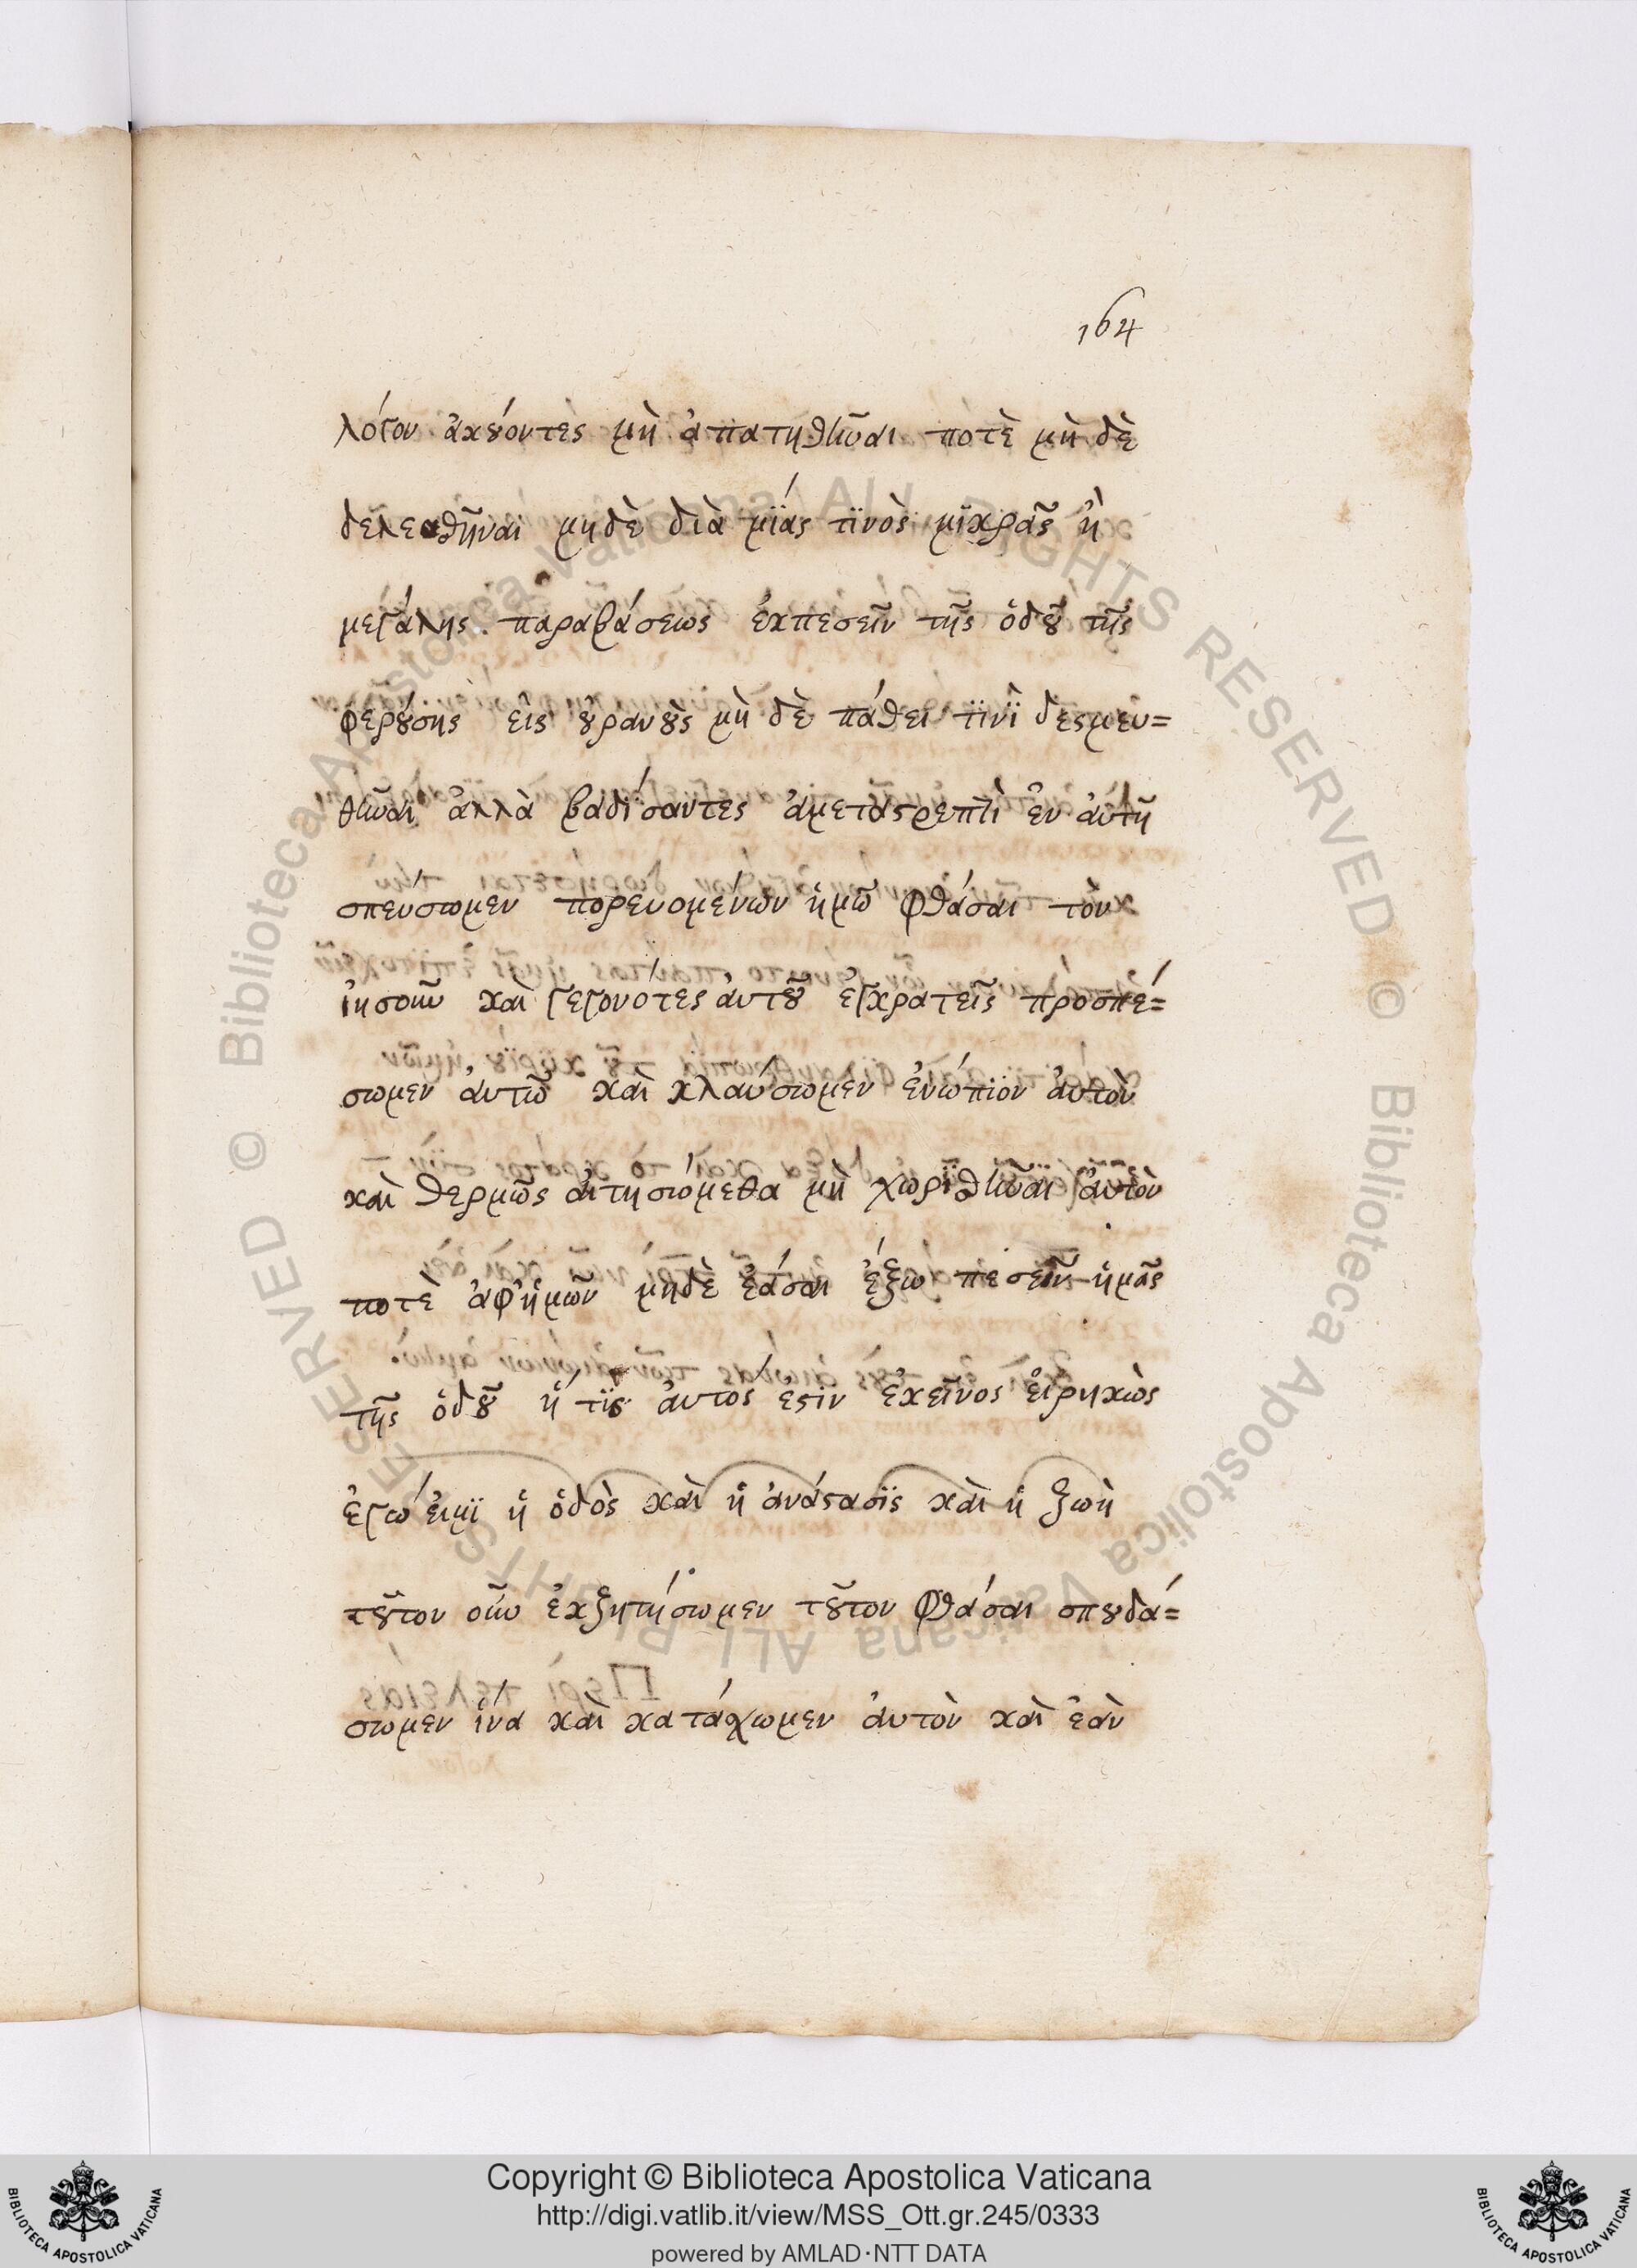 164
λόγον ἀκούοντες μὴ ἀπατηθῆναι ποτὲ μὴ δὲ
δελεαθῆναι μηδὲ διὰ μϊάς τϊνὸς μϊκρᾶς ἢ
μεγάλης παραβάσεως ἐκπεσεῖν τῆς ὁδοῦ τῆς
φερούσης εἰς οὐρανοὺς μὴ δὲ πάθει τϊνὶ δεσμευ=
θῆναι ἀλλὰ βαδίσαντες ἀμεταστρεπτὶ ἐν ἀυτῆ
σπεύσωμεν πορευομένων ἡμῶ φθάσαι τὸν
ἰησοῦν καὶ γεγονότες ἀυτοῦ ἐγκρατεῖς προσπέ=
σωμεν ἀυτῶ καὶ κλαύσωμεν ἐνώπϊον ἀυτὸν
καὶ θερμῶς ἀιτησώμεθα μὴ χωρϊθῆναι ἀυτὸν
ποτὲ ἀφ' ἡμῶν μηδὲ ἐάσαι ἔξω πεσεῖν ἡμᾶς
τῆς ὁδοῦ ἥ τϊς ἀυτος ἐστίν ἐκεῖνος ἐιρηκὼς
ἐγώ ἐιμϊ ἡ ὁδὸς καὶ ἡ ἀνάστασϊς καὶ ἡ ζωὴ
τοῦτον οὖν ἐκζητήσωμεν τοῦτον φθάσαι σπουδά=
σωμεν ἵνα καὶ κατάχωμεν ἀυτὸν καὶ ἐὰν
Copyright © Biblioteca Apostolica Vaticana
http://digi.vatlib.it/view/MSS_Ott.gr.245/0333
powered by AMLAD·NTT DATA
BIBLIOTECA APOSTOLICA VATICANA
BIBLIOTECA APOSTOLICA VATICANA
© Biblioteca Apostolica Vaticana ALL RIGHTS RESERVED
© Biblioteca Apostolica Vaticana ALL RIGHTS RESERVED